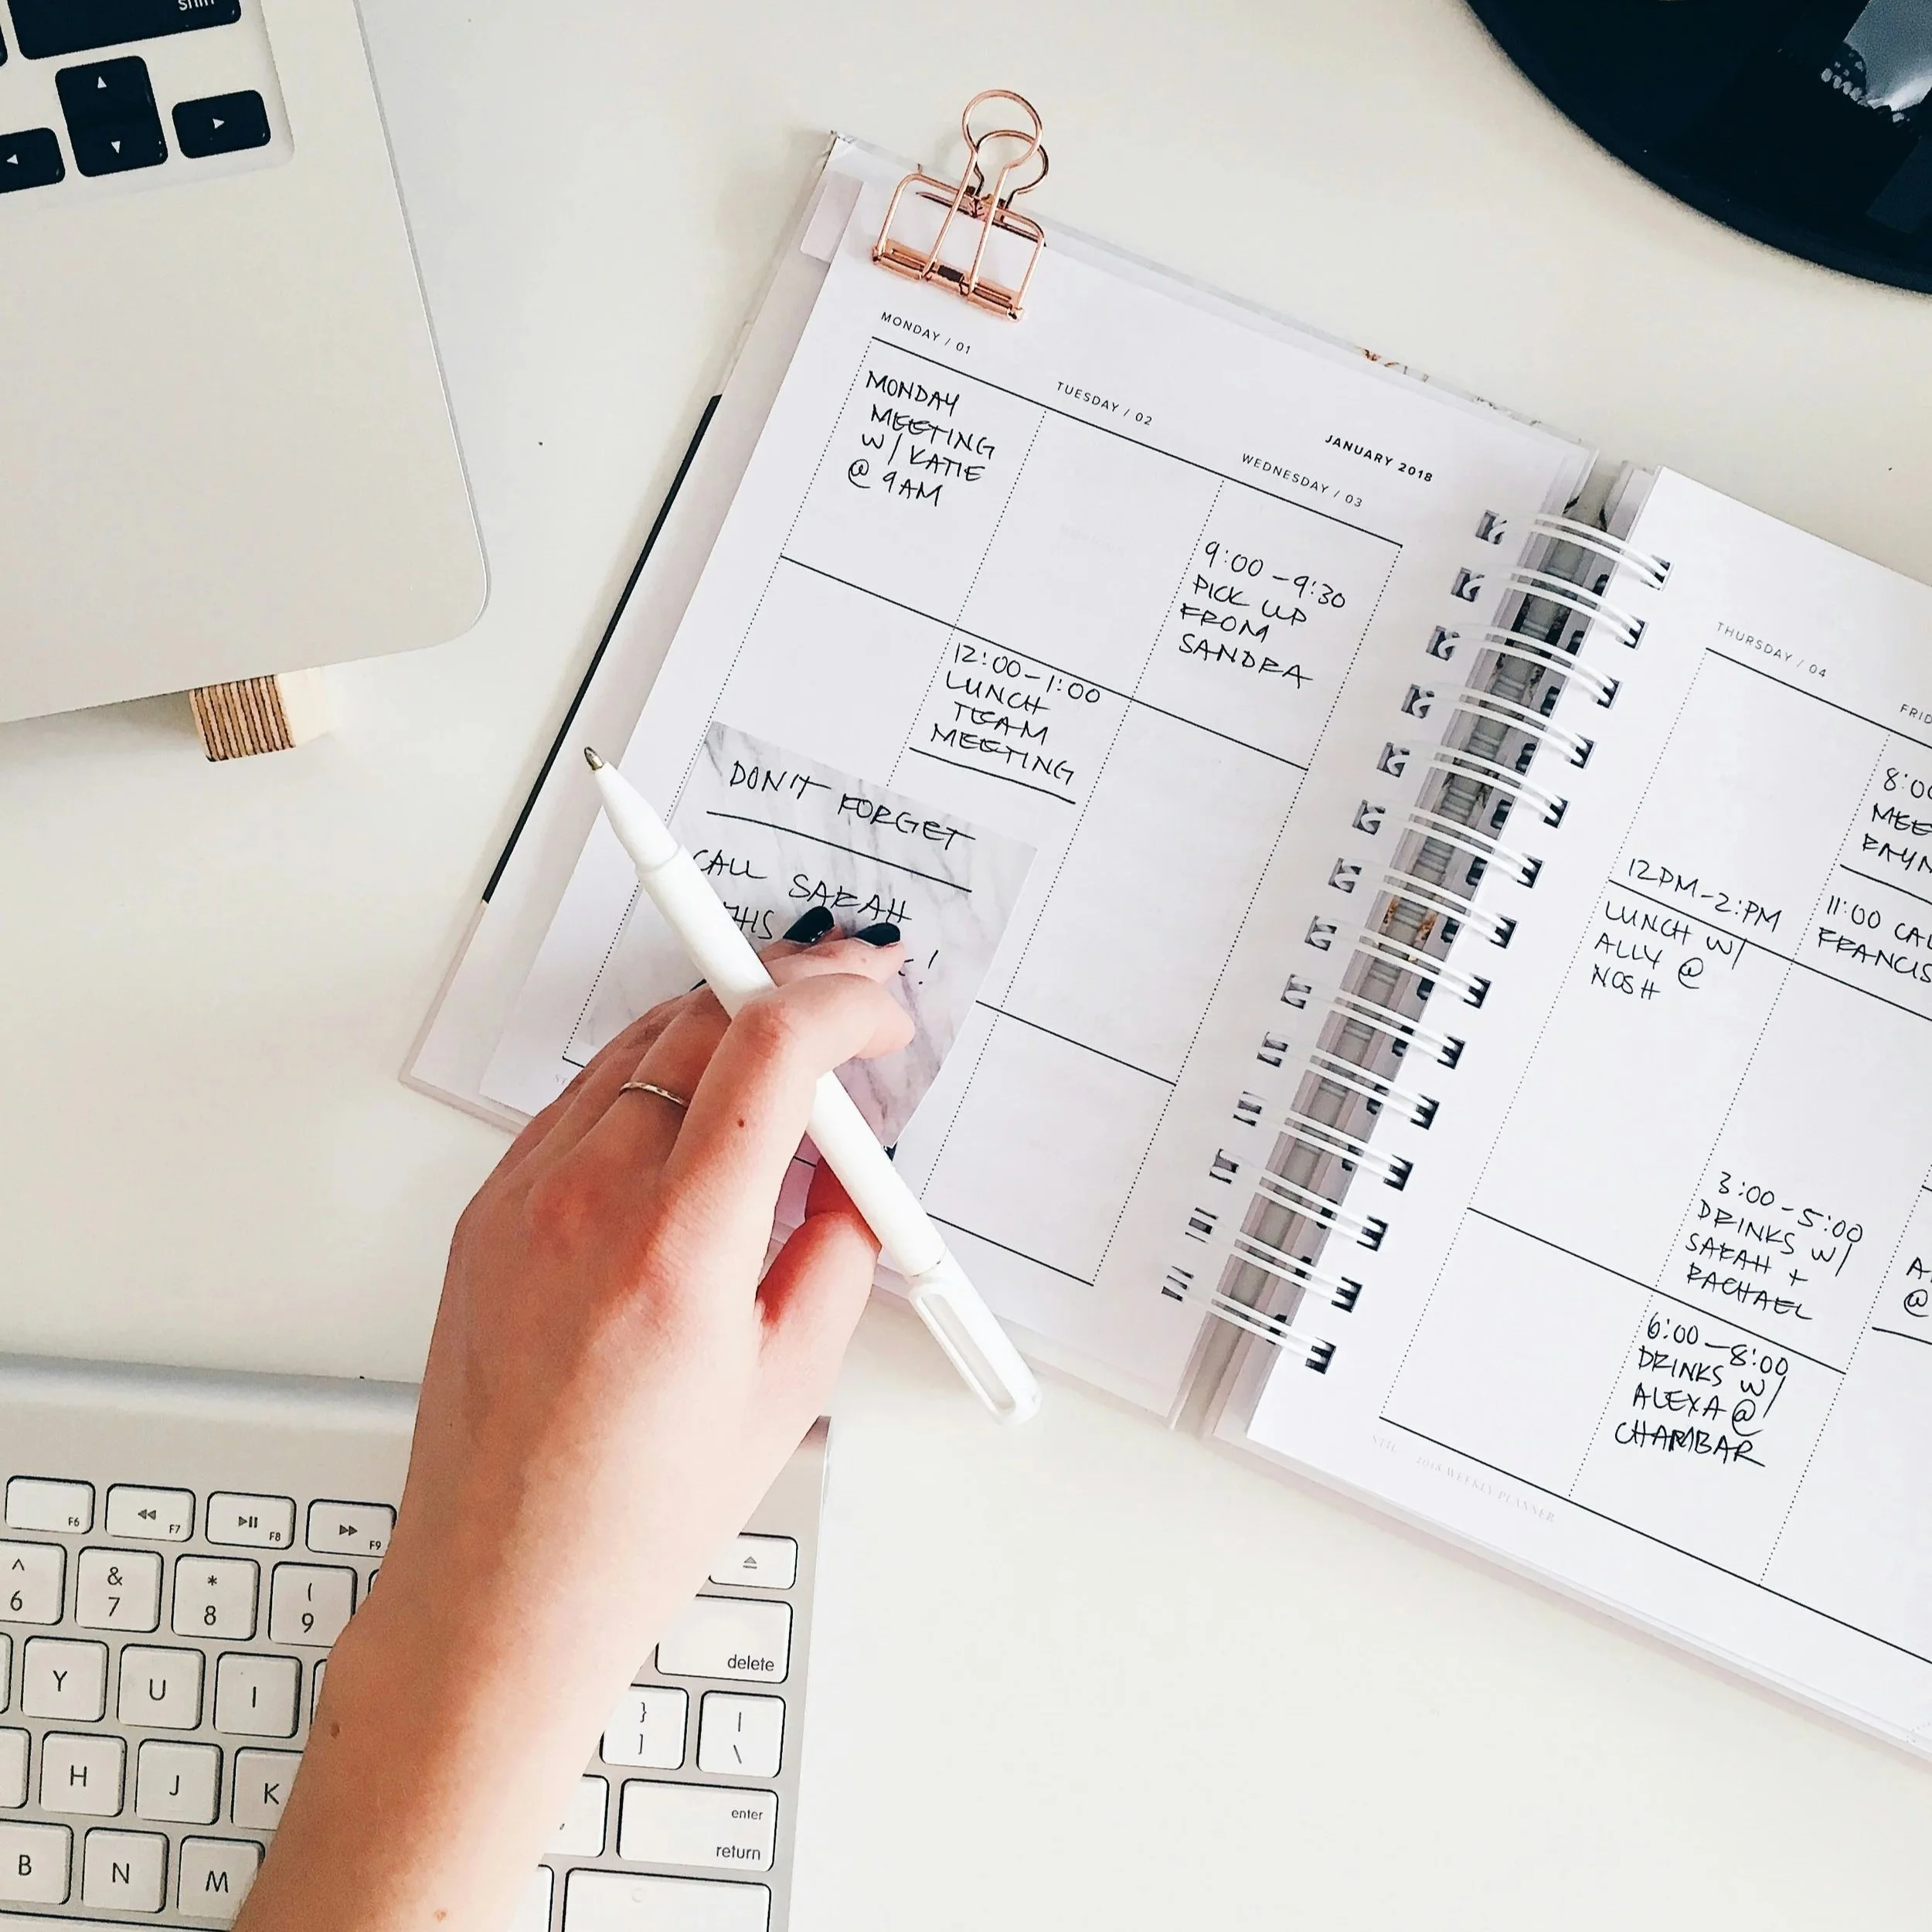 shift
MONDAY / 01
TUESDAY / 02
JANUARY 2018
WEDNESDAY / 03
MONDAY
MEETING
W/ KATIE
@ 9AM
12:00-1:00
LUNCH
TEAM
MEETING
9:00-9:30
PICK UP
FROM
SANDRA
DON'T FORGET
CALL SARAH
THIS
!
THURSDAY / 04
12PM-2:PM
LUNCH W/
ALLY @
NOSH
8:00
11:00
FRANCIS
3:00-5:00
DRINKS W/
SARAH +
RACHAEL
6:00-8:00
DRINKS W/
ALEXA @
CHAMBAR
@
2018 WEEKLY PLANNER
F6
F7
F8
F9
^
6
&
7
*
8
(
9
delete
Y
U
I
}
]
|
\
H
J
K
enter
return
B
N
M